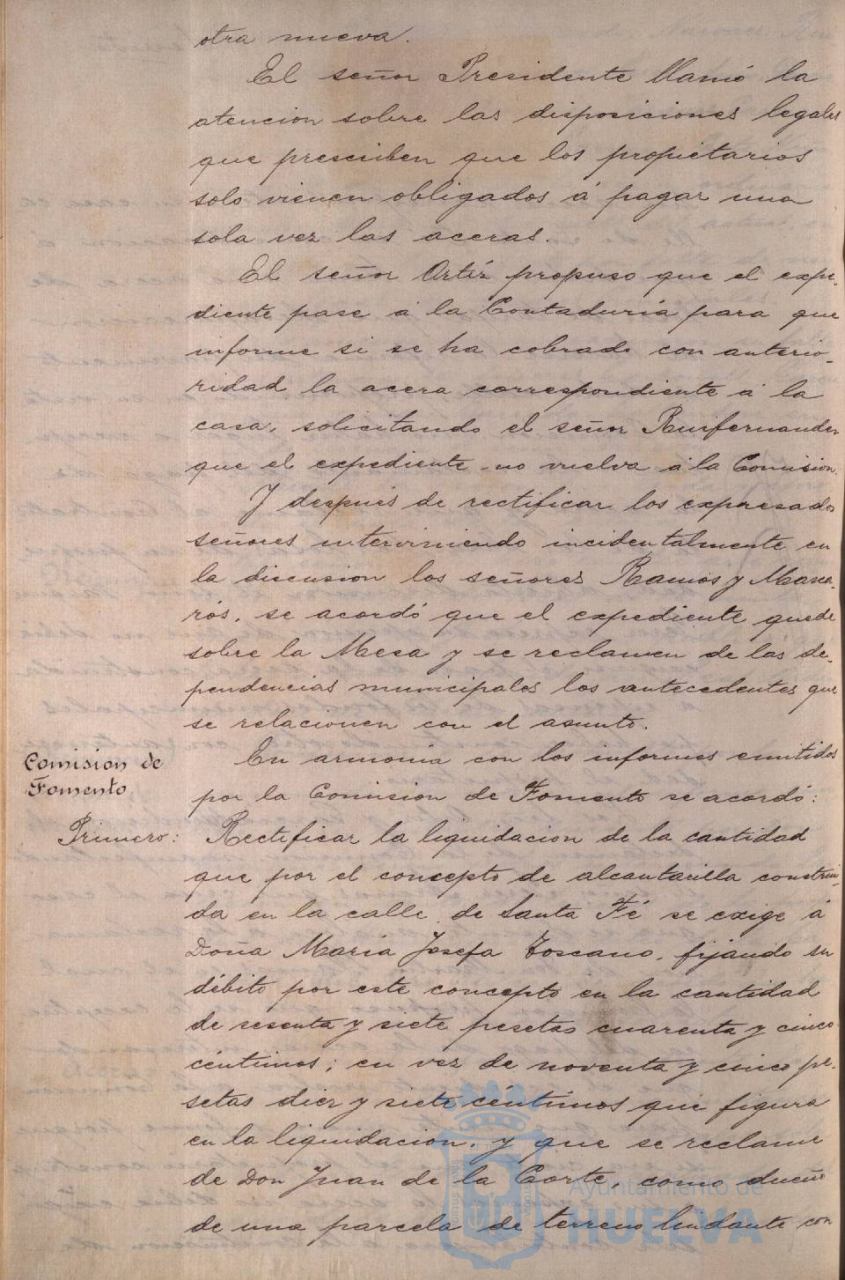 otra nueva.
El señor Presidente llamó la
atencion sobre las disposiciones legales
que prescriben que los propietarios
solo vienen obligados á pagar una
sola vez las aceras.
El señor Ortiz propuso que el expe-
diente pase á la Contaduría para que
informe si se ha cobrado con anterio-
ridad la acera correspondiente á la
casa, solicitando el señor Ruifernandez
que el expediente no vuelva á la Comision.
Y después de rectificar los expresados
señores interviniendo incidentalmente en
la discusion los señores Ramos y Masca-
rós, se acordó que el expediente quede
sobre la Mesa y se reclamen de las de-
pendencias municipales los antecedentes que
se relacionen con el asunto.
Comision de
Fomento
En armonia con los informes emitidos
por la Comision de Fomento se acordó:
Primero: Rectificar la liquidacion de la cantidad
que por el concepto de alcantarilla construi-
da en la calle de Santa Fé se exige á
Doña María Josefa Toscano, fijando su
débito por este concepto en la cantidad
de sesenta y siete pesetas cuarenta y cinco
céntimos; en vez de noventa y cinco pe-
setas diez y siete céntimos que figura
en la liquidacion, y que se reclame
de Don Juan de la Corte, como dueño
de una parcela de terreno lindante con
Ayuntamiento de
HUELVA